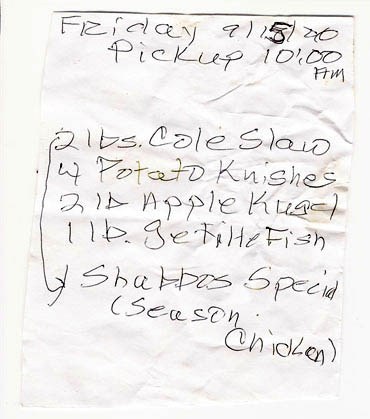 Friday 9/15/20
Pickup 10:00
AM
2 lbs. Cole Slaw
4 Potato Knishes
2 lb Apple Kugel
1 lb. Gefilte Fish
Shabbos Special
(Season
Chicken)